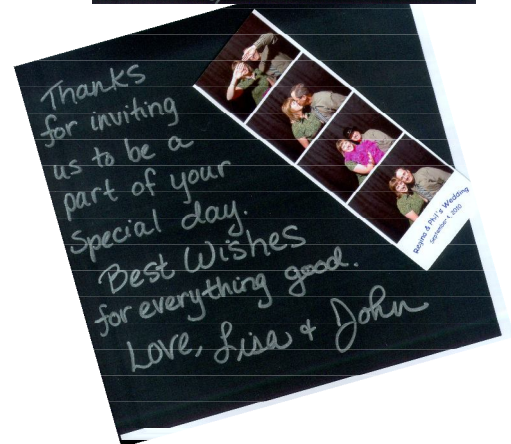 Thanks
for inviting
us to be a
part of your
Special day.
Best Wishes
for everything good.
Love, Lisa + John
Regina & Phil's Wedding
September 4, 2010